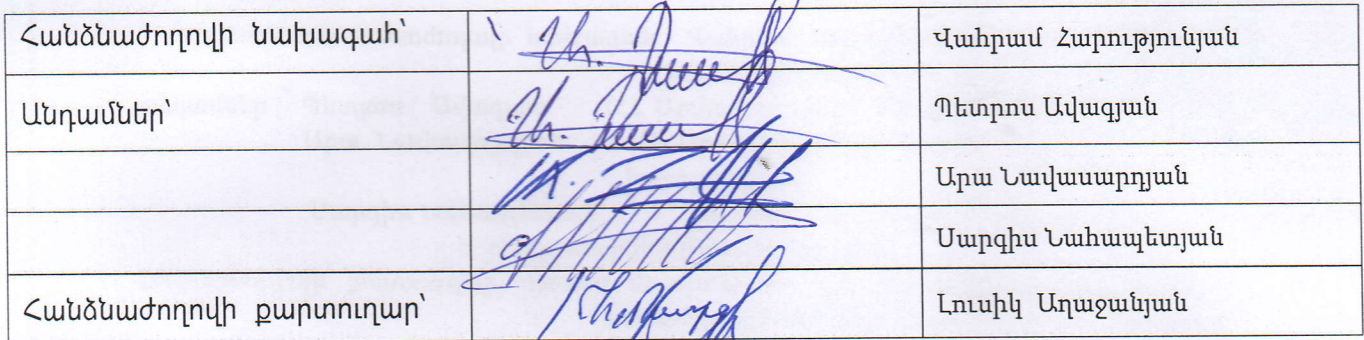 Հանձնաժողովի նախագահ՝ Վահրամ Հարությունյան
Անդամներ՝ Պետրոս Ավագյան
Արա Նավասարդյան
Սարգիս Նահապետյան
Հանձնաժողովի քարտուղար՝ Լուսիկ Աղաջանյան